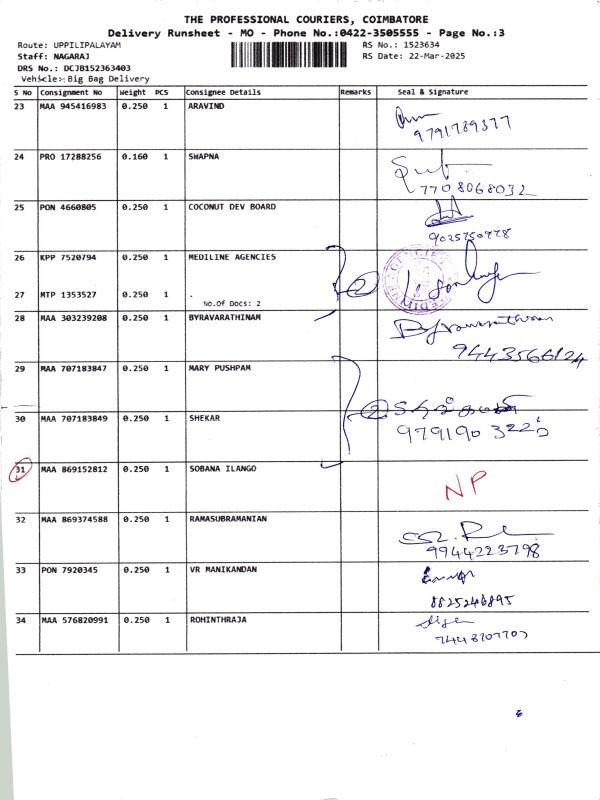 THE PROFESSIONAL COURIERS, COIMBATORE
Delivery Runsheet - MO - Phone No.:0422-3505555 - Page No.:3
Route: UPPILIPALAYAM
RS No.: 1523634
Staff: NAGARAJ
RS Date: 22-Mar-2025
DRS No.: DCJB152363403
Vehicle:- Big Bag Delivery
S No Consignment No Weight PCS Consignee Details Remarks Seal & Signature
23 MAA 945416983 0.250 1 ARAVIND
9791789377
24 PRO 17288256 0.160 1 SWAPNA
7708068032
25 PON 4660805 0.250 1 COCONUT DEV BOARD
9025750978
26 KPP 7520794 0.250 1 MEDILINE AGENCIES
2
27 MTP 1353527 0.250 1 .
No.Of Docs: 2
28 MAA 303239208 0.250 1 BYRAVARATHINAM
9443566124
29 MAA 707183847 0.250 1 MARY PUSHPAM
2
30 MAA 707183849 0.250 1 SHEKAR
31 MAA 869152812 0.250 1 SOBANA ILANGO
NP
32 MAA 869374588 0.250 1 RAMASUBRAMANIAN
9944223798
33 PON 7920345 0.250 1 VR MANIKANDAN
8825246895
34 MAA 576820991 0.250 1 ROHINTHRAJA